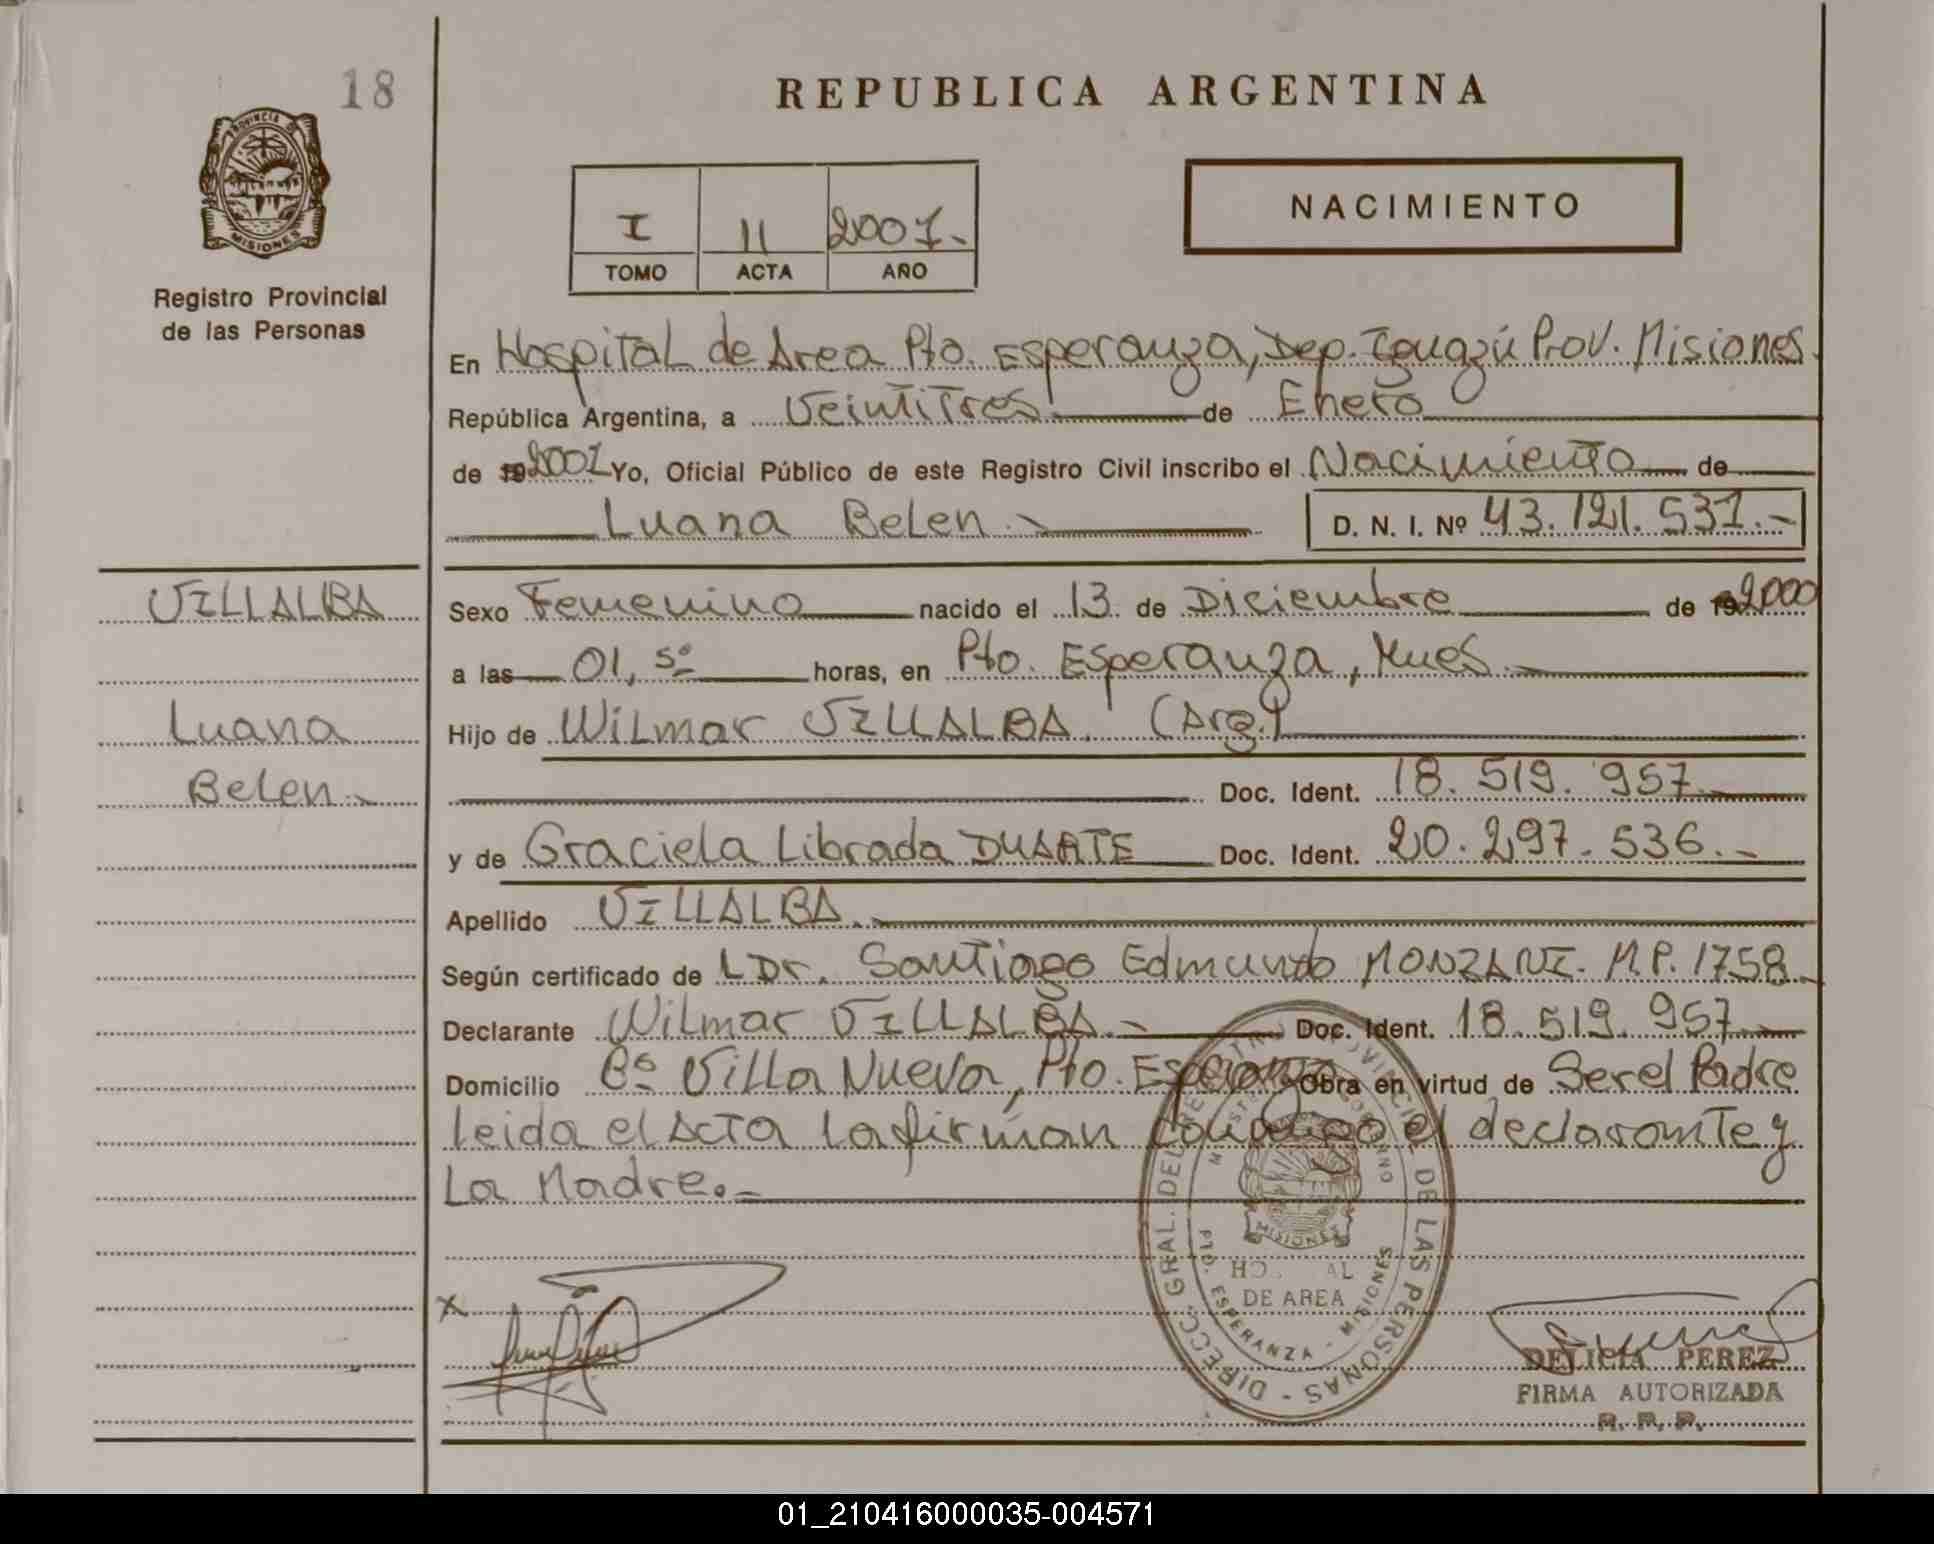 18
REPUBLICA ARGENTINA
PROVINCIA DE
MISIONES
Registro Provincial
de las Personas
I 11 2001.-
TOMO ACTA AÑO
NACIMIENTO
En Hospital de Area Pto. Esperanza, Dep. Iguazú Prov. Misiones.
República Argentina, a Veintitres de Enero
de 19 2001 Yo, Oficial Público de este Registro Civil inscribo el Nacimiento de
Luana Belen.- D. N. I. Nº 43.121.531.-
VILLALBA
Sexo Femenino nacido el 13 de Diciembre de 19 2000
a las 01,50 horas, en Pto. Esperanza, Mnes.-
Luana
Hijo de Wilmar VILLALBA. (Arg.)
Belen.-
Doc. Ident. 18.519.957.-
y de Graciela Librada DUARTE Doc. Ident. 20.297.536.-
Apellido VILLALBA.-
Según certificado de Dr. Santiago Edmundo MONZANI. M.P. 1758.-
Declarante Wilmar VILLALBA.- Doc. Ident. 18.519.957.-
Domicilio Bº Villa Nueva, Pto. Esperanza Obra en virtud de Ser el Padre
leida el Acta la firman conmigo el declarante y
La Madre.-
DIRECC. GRAL. DEL REGISTRO PROVINCIAL DE LAS PERSONAS
MISIONES
DE AREA
PTO. ESPERANZA - MISIONES
x
DELICIA PEREZ
FIRMA AUTORIZADA
R. P. P.
01_210416000035-004571